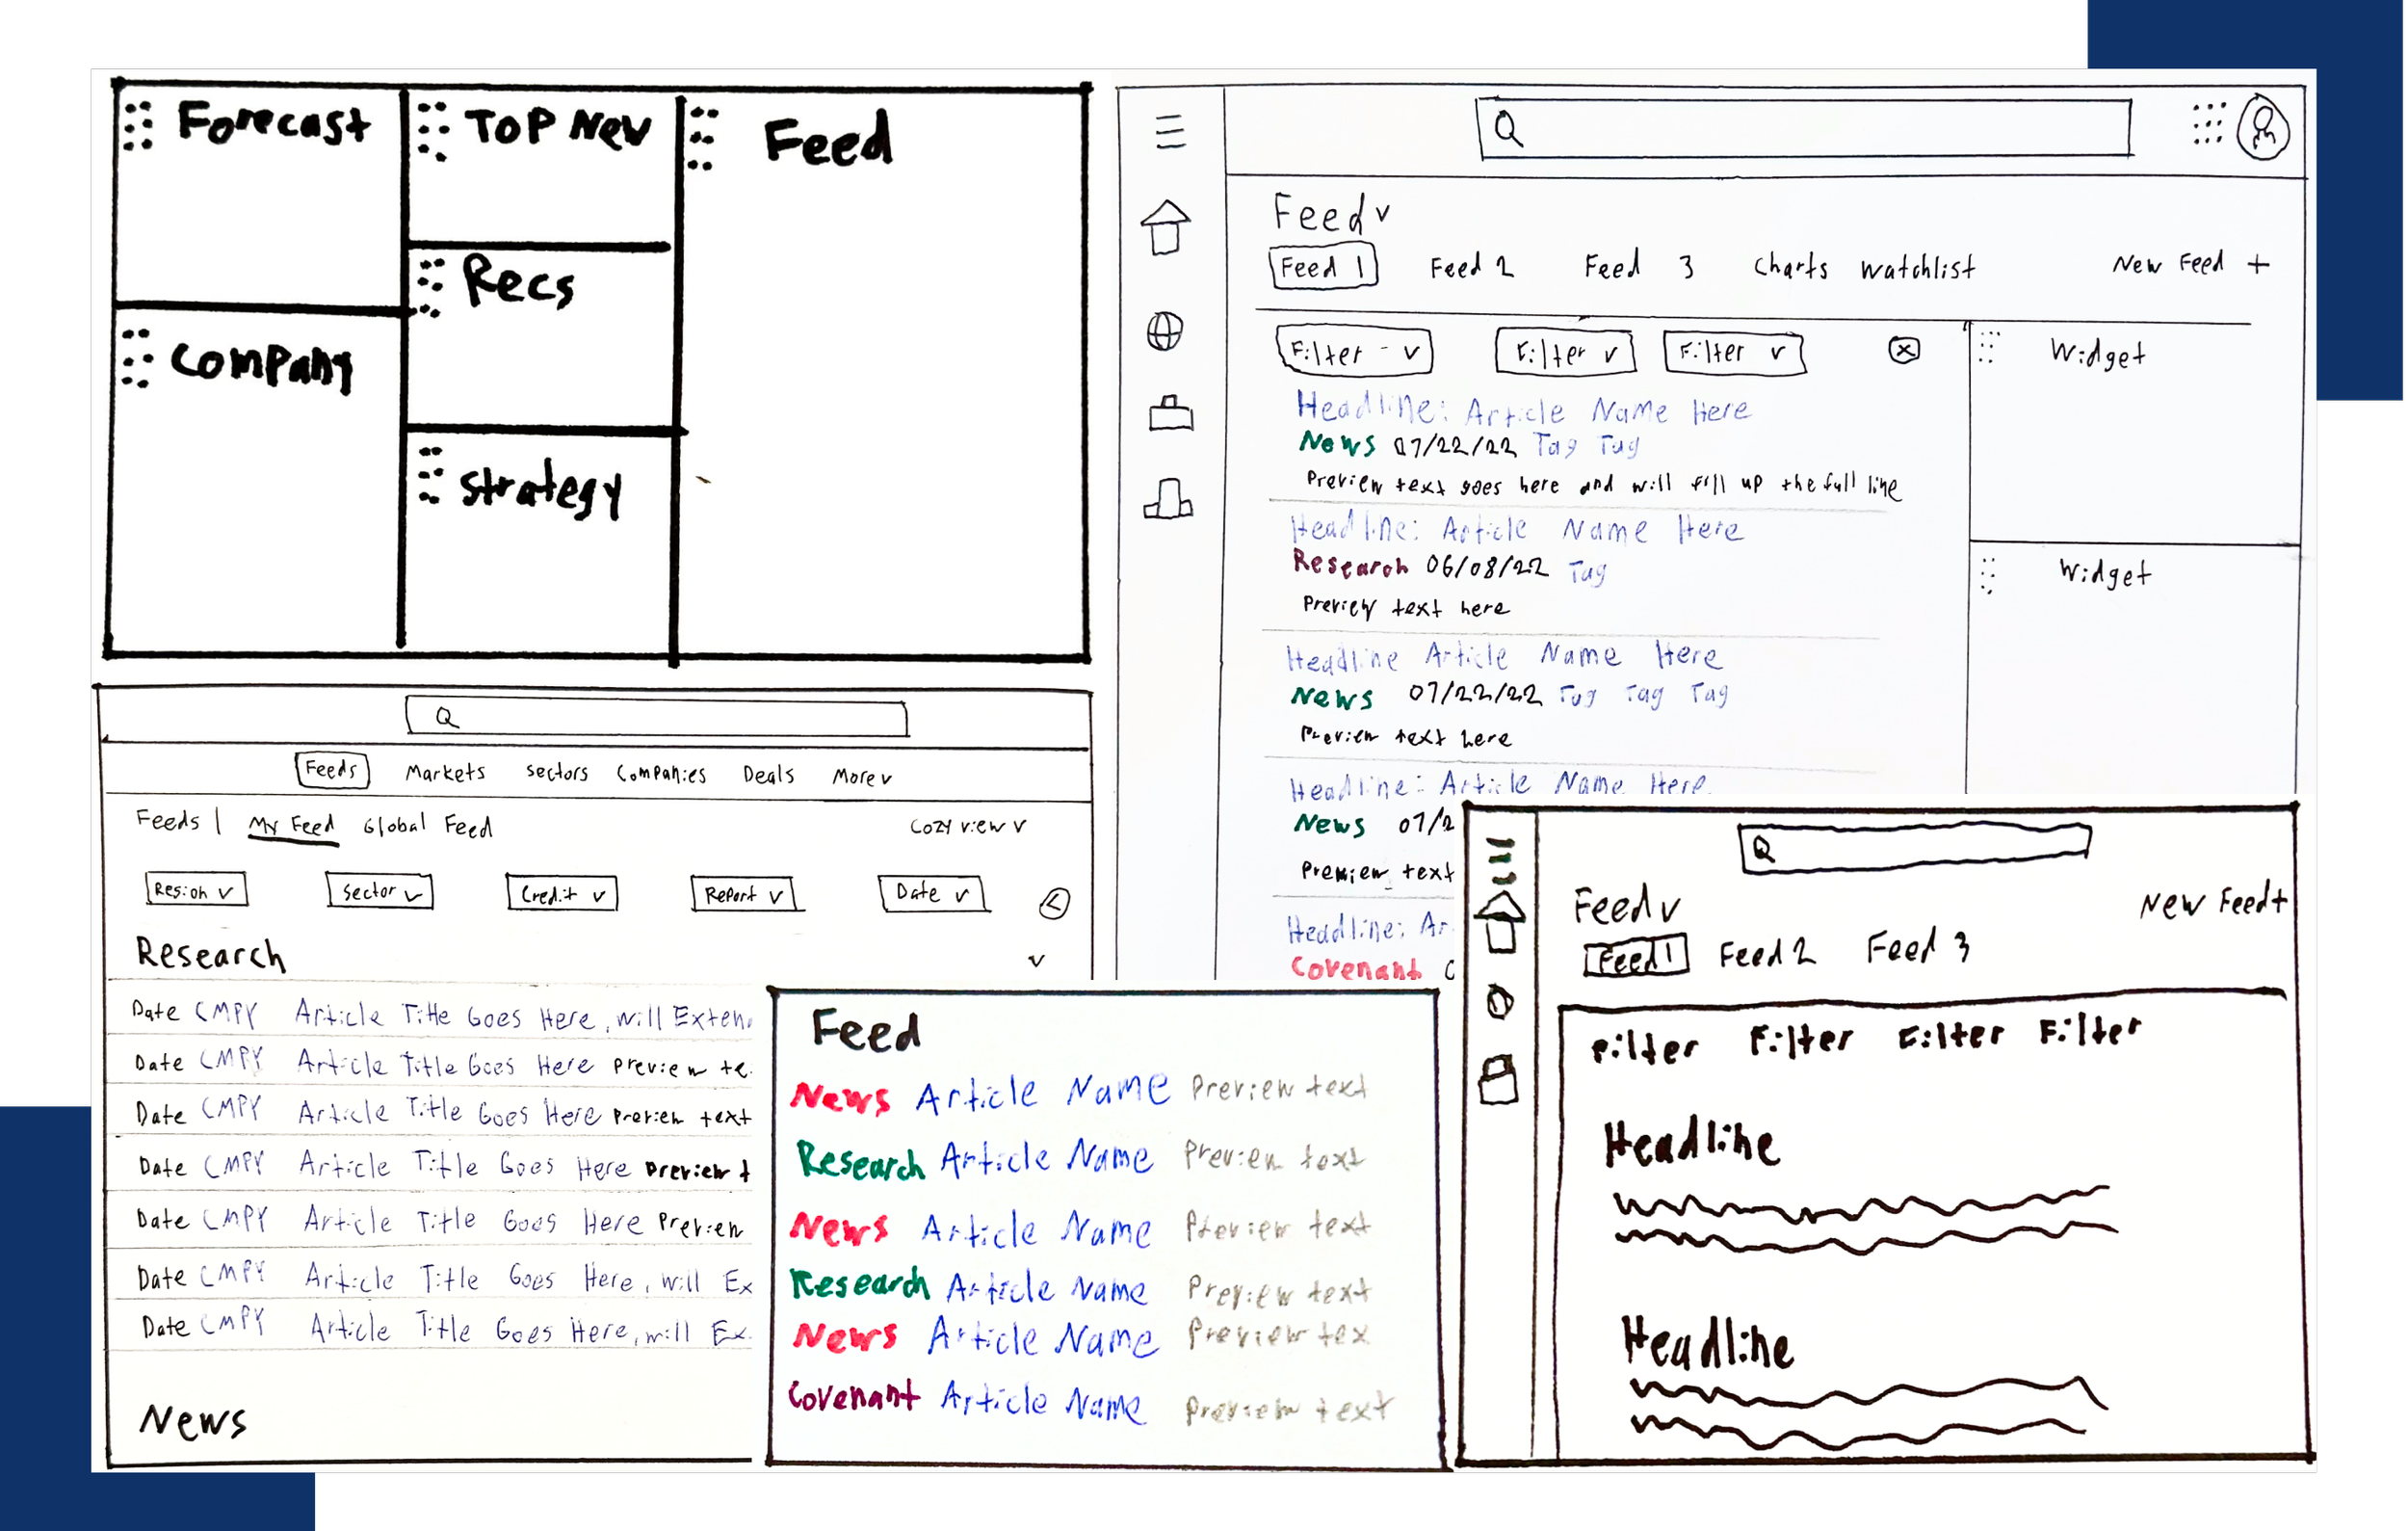 Forecast
Top New
Feed
Recs
Company
Strategy
Feed v
Feed 1 Feed 2 Feed 3 Charts Watchlist New Feed +
Filter - v Filter v Filter v
Widget
Headline: Article Name Here
News 07/22/22 Tag Tag
Preview text goes here and will fill up the full line
Headline: Article Name Here
Research 06/08/22 Tag
Preview text here
Widget
Headline Article Name Here
News 07/22/22 Tag Tag Tag
Preview text here
Headline: Article Name Here
News 07/2
Preview text
Headline: Ar
Covenant
Feeds Markets Sectors Companies Deals More v
Feeds | My Feed Global Feed Cozy view v
Region v Sector v Credit v Report v Date v
Research v
Date CMPY Article Title Goes Here, will Exten
Date CMPY Article Title Goes Here Preview te
Date CMPY Article Title Goes Here Preview text
Date CMPY Article Title Goes Here Preview t
Date CMPY Article Title Goes Here Preview
Date CMPY Article Title Goes Here, will Ex
Date CMPY Article Title Goes Here, will Ex
News
Feed
News Article Name Preview text
Research Article Name Preview text
News Article Name Preview text
Research Article Name Preview text
News Article Name Preview tex
Covenant Article Name Preview text
Feed v New Feed+
Feed 1 Feed 2 Feed 3
Filter Filter Filter Filter
Headline
Headline